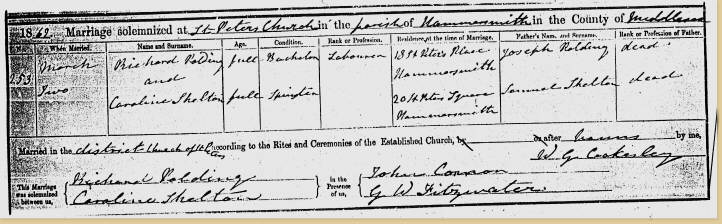 1862 Marriage solemnized at St Peters Church in the parish of Hammersmith in the County of Middlesex
When Married. Name and Surname. Age. Condition. Rank or Profession. Residence at the time of Marriage. Father's Name and Surname. Rank or Profession of Father.
253 March Two Richard Polding full Bachelor Labourer 13 St Peters Place Hammersmith Joseph Polding dead
and
Caroline Skelton full Spinster 20 St Peters Square Hammersmith Samuel Skelton dead
Married in the district Church of St according to the Rites and Ceremonies of the Established Church, by or after banns by me,
W. G. Cookesley
This Marriage was solemnized between us, Richard Polding Caroline Skelton in the Presence of us, John Connon G W Fitzwater